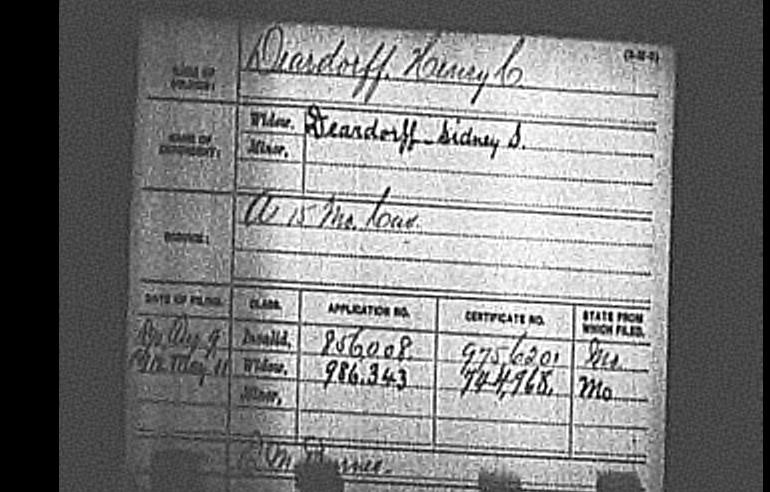 (3-M-0)
NAME OF SOLDIER: Deardorff, Henry C.
NAME OF DEPENDENT: Widow, Deardorff Sidney S.
Minor,
SERVICE: A 15 Mo. Cav.
DATE OF FILING. CLASS. APPLICATION NO. CERTIFICATE NO. STATE FROM WHICH FILED.
Aug 9 Invalid, 856008 Mo.
May 11 Widow, 986.343 744,968, Mo
Minor,